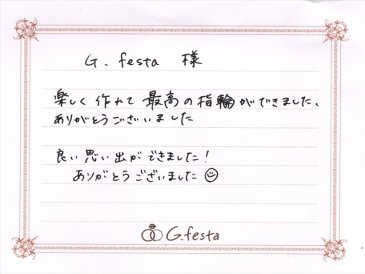 G. festa 様
楽しく作れて最高の指輪ができました、
ありがとうございました
良い思い出ができました!
ありがとうございました☺
G.festa